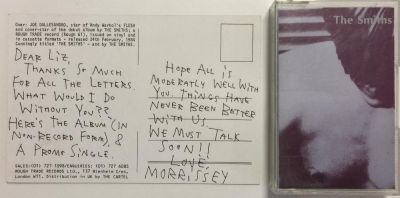 Over: JOE DALLESANDRO, star of Andy Warhol's FLESH
and cover-star of the debut album by THE SMITHS; a
ROUGH TRADE record (Rough 61), issued on vinyl and
in cassette formats - released 24th February, 1984
Cunningly titled 'THE SMITHS' - and by THE SMITHS.
DEAR LIZ,
THANKS SO MUCH
FOR ALL THE LETTERS.
WHAT WOULD I DO
WITHOUT YOU??
HERE'S THE ALBUM (IN
NON-RECORD FORM), &
A PROMO SINGLE.
HOPE ALL IS
MODERATLY WELL WITH
YOU. THINGS HAVE
NEVER BEEN BETTER
WITH US.
WE MUST TALK
SOON!!
LOVE,
MORRISSEY
SALES:(01) 727 1098/ENQUIRIES: (01) 727 6085
ROUGH TRADE RECORDS LTD., 137 Blenheim Cres,
London W11. Distribution in UK by THE CARTEL
The Smiths